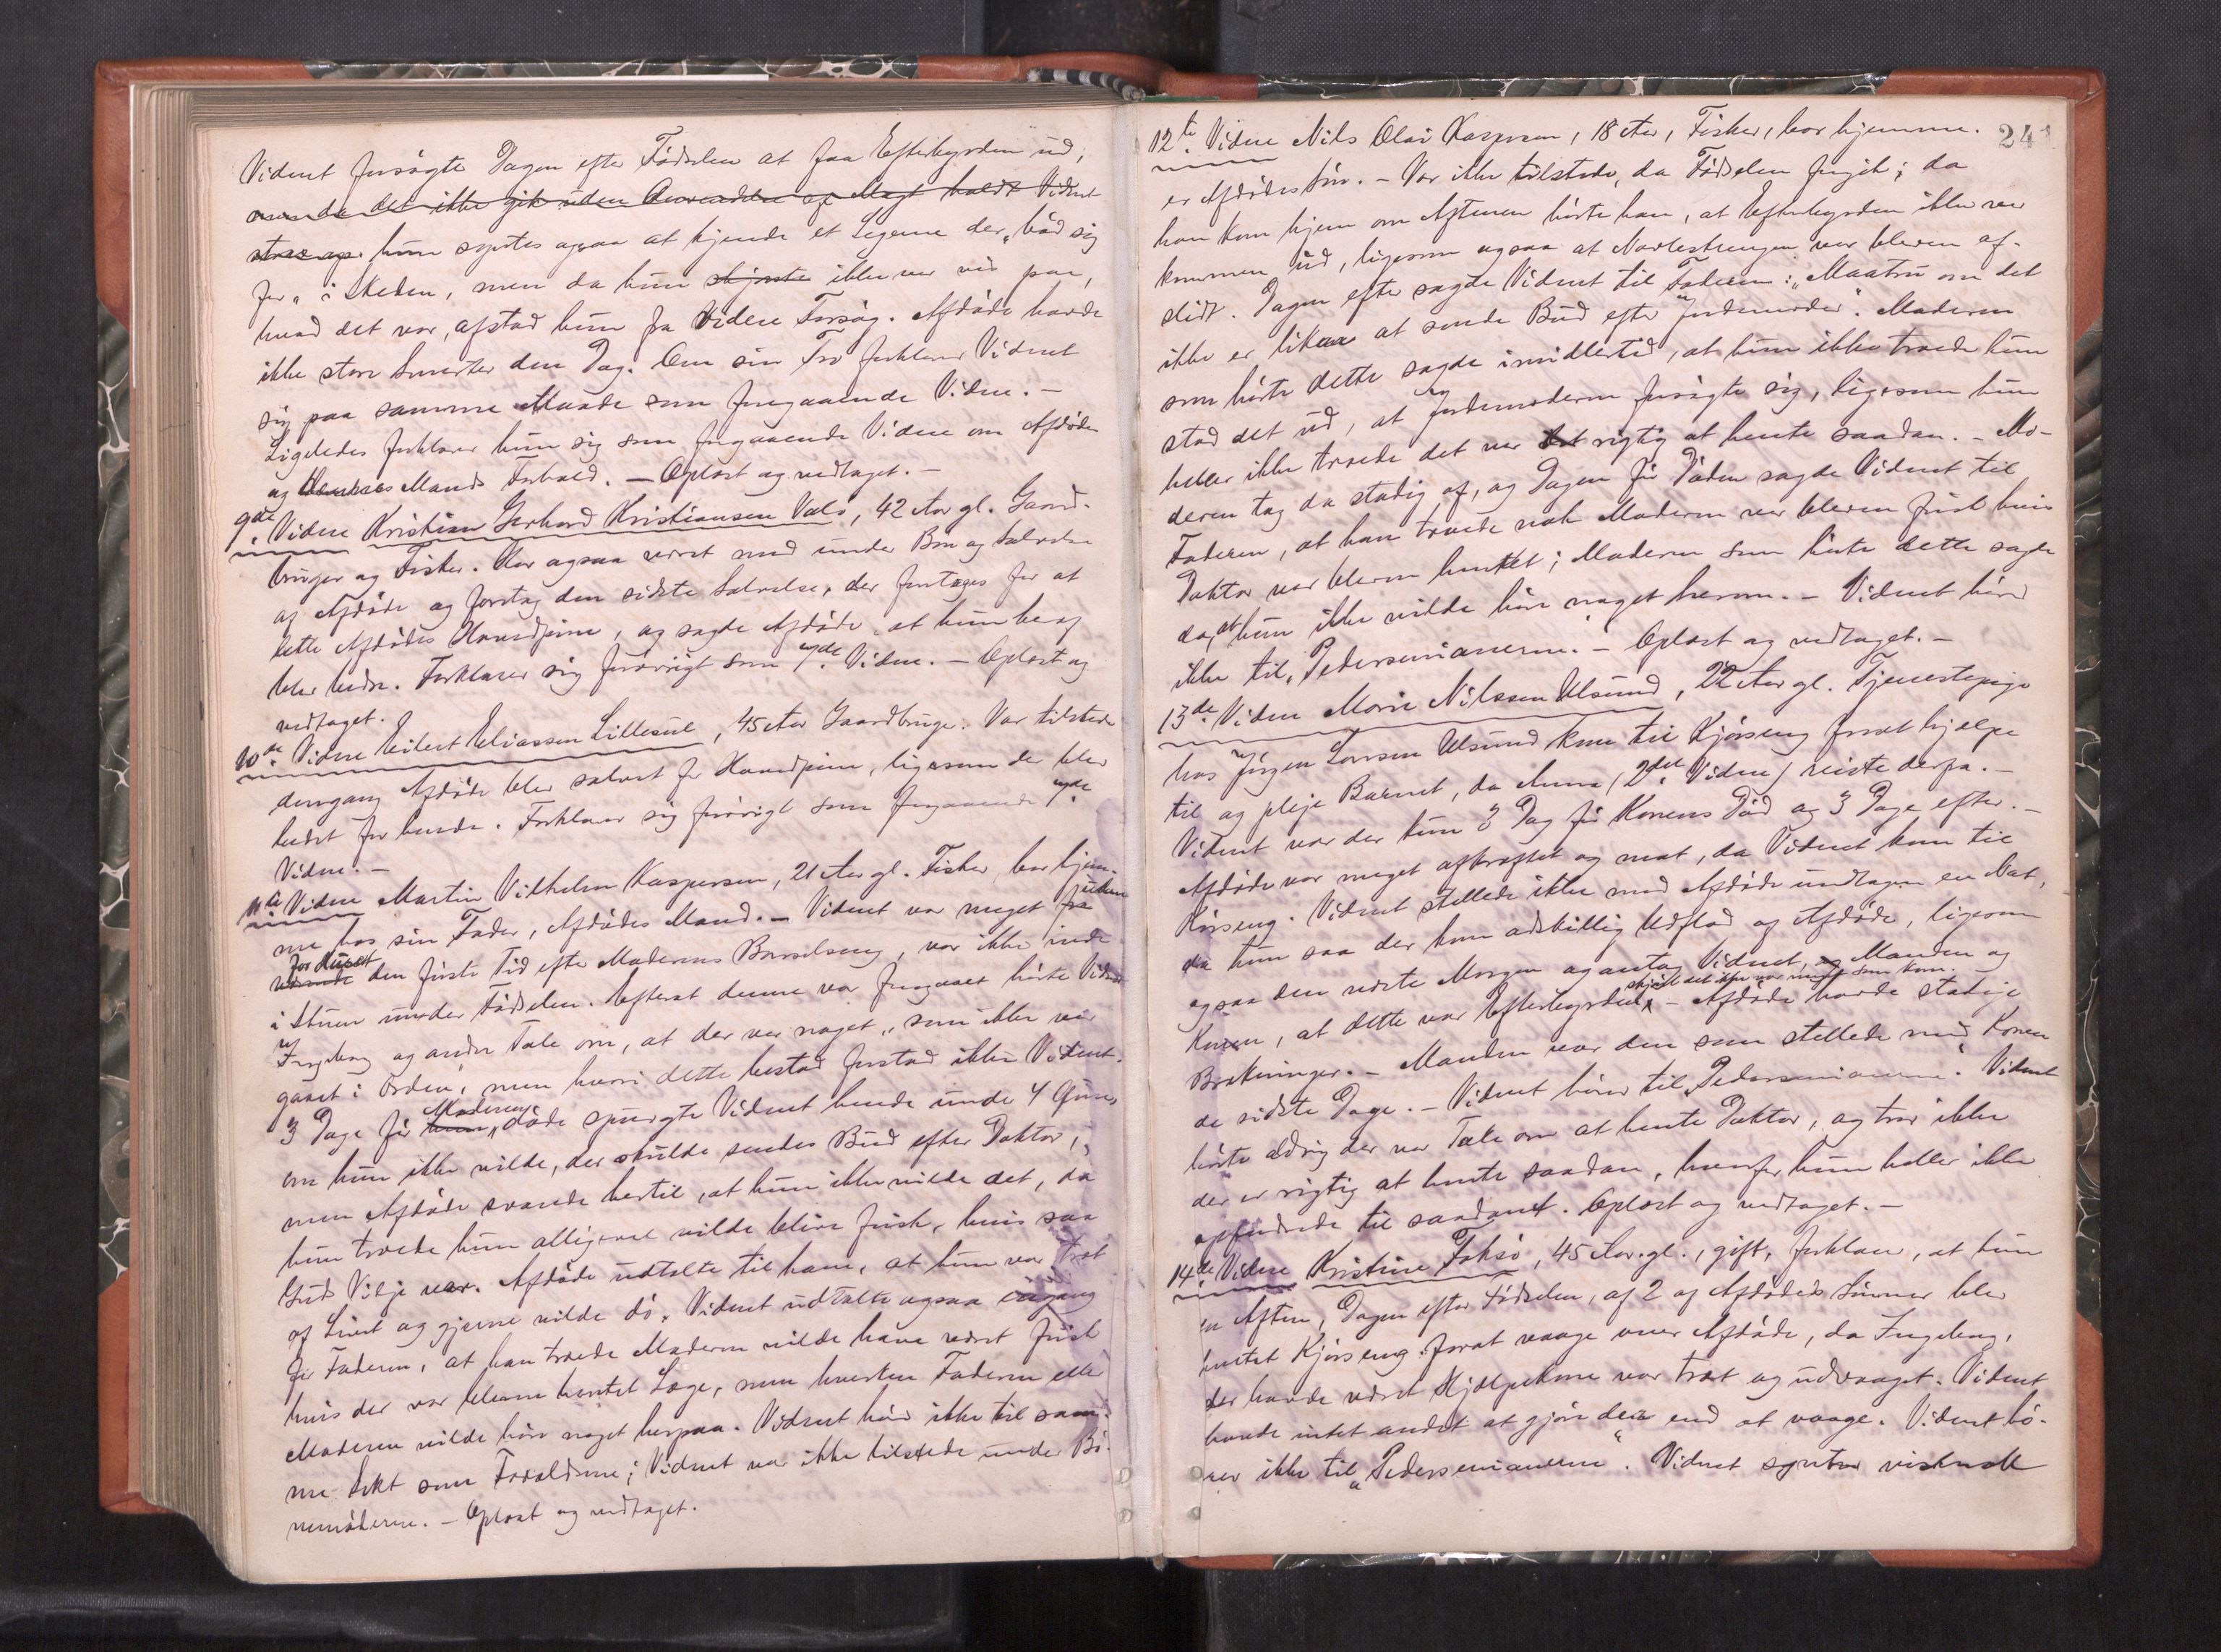 Vidnet forsøgte Dagen efter Fødselen at faa Efterbyrden ud,
men da det ikke gik uden Anvendelse af Magt holdt Vidnet
strax op. hun syntes ogsaa at kjende et Legeme der „bød sig
for“ i Skeden, men da hun skjønte ikke var vis paa,
hvad det var, afstod hun fra videre Forsøg. Afdøde havde
ikke store Smerter den Dag. Om sin Tro forklarer Vidnet
sig paa samme Maade som foregaaende Vidne. –
Ligeledes forklarer hun sig som foregaaende Vidne om Afdøde
og dennes Mands Forhold. – Oplæst og vedtaget. –
9de Vidne Kristian Gerhard Kristiansen Valø, 42 Aar gl. Gaard-
bruger og Fisker. Har ogsaa været med under Bøn og Salvelse
af Afdøde og foretog den sidste Salvelse, der foretoges for at
lette Afdødes Hovedpine, og sagde Afdøde, at hun heraf
blev bedre. Forklarer sig forøvrigt som 7de Vidne. – Oplæst og
vedtaget.
10de Vidne Eilert Eliassen Lillesul, 45 Aar Gaardbruger. Var tilstede
dengang Afdøde blev salvet for Hovedpine, ligesom der blev
bedet for hende. Forklarer sig forøvrigt som foregaaende 7de
Vidne. –
11te Vidne Martin Vilhelm Kaspersen, 21 Aar gl. Fisker, bor hjem-
me hos sin Fader, Afdødes Mand. – Vidnet var meget fra uden
værende for Huset den første Tid efter Moderens Barselseng, var ikke inde
i Stuen under Fødselen. Efterat denne var foregaaet hørte Vidnet
Ingeborg og andre Tale om, at der var noget, „som ikke var
gaaet i Orden“, men hvori dette bestod forstod ikke Vidnet.
3 Dage før hun Moderen døde spurgte Vidnet hende under 4 Øine,
om hun ikke vilde, der skulde sendes Bud efter Doktor,
men Afdøde svarede hertil, at hun ikke vilde det, da
hun troede hun alligevel vilde blive frisk, hvis saa
Guds Vilje var. Afdøde udtalte til ham, at hun var træt
af Livet og gjerne vilde dø. Vidnet udtalte ogsaa engang
for Faderen, at han troede Moderen vilde have været frisk
hvis der var bleven hentet Læge, men hverken Faderen eller
Moderen vilde høre noget herpaa. Vidnet hører ikke til sam-
me Sekt som Forældrene; Vidnet var ikke tilstede under Bø-
nemøderne. – Oplæst og vedtaget.
241
12te Vidne Nils Olai Kaspersen, 18 Aar, Fisker, bor hjemme.
er Afdødes Søn. – Var ikke tilstede, da Fødselen foregik; da
han kom hjem om Aftenen hørte han, at Efterbyrden ikke var
kommen ud, ligesom ogsaa at Navlestrengen var bleven af-
slidt. Dagen efter sagde Vidnet til Faderen: „Maatru om det
ikke er likaa at sende Bud efter Jordemoder“. Moderen
som hørte dette sagde imidlertid, at hun ikke troede hun
stod det ud, at Jordemoderen forsøgte sig, ligesom hun
heller ikke troede det var det rigtig at hente saadan. – Mo-
deren tog da stadig af, og Dagen før Døden sagde Vidnet til
Faderen, at han troede nok Moderen var bleven frisk hvis
Doktor var bleven hentet; Moderen som hørte dette sagde
da, at hun ikke vilde høre noget herom. – Vidnet hører
ikke til „Pedersenianerne“. – Oplæst og vedtaget. –
13de Vidne Marie Nilssen Ulsund, 22 Aar gl. Tjenestepige
hos Jørgen Larssen Ulsund kom til Kjørseng forat hjelpe
til og pleje Barnet, da Anna (2det Vidne) reiste derfra. –
Vidnet var der kun 3 Dag før Konens Død og 3 Dage efter. –
Afdøde var meget afkræftet og mat, da Vidnet kom til
Kørseng. Vidnet stellede ikke med Afdøde undtagen en Nat,
da hun saa der kom adskillig Udflod af Afdøde, ligesom
ogsaa den neste Morgen og antog Vidnet, og Manden og
Konen, at dette var Efterbyrden, skjønt det ikke var meget som kom. – Afdøde havde stadige
Brækninger. – Manden var den som stellede med Konen
de sidste Dage. – Vidnet hører til „Pedersenianerne“. Vidnet
hørte aldrig der var Tale om at hente Doktor, og tror ikke
der er rigtig at hente saadan, hvorfor hun heller ikke
opfordrede til saadant. Oplæst og vedtaget. –
14de Vidne Kristine Foksø, 45 Aar gl., gift, forklarer, at hun
en Aften, Dagen efter Fødselen, af 2 af Afdødes Sønner blev
hentet Kjørseng forat vaage over Afdøde, da Ingeborg,
der havde været Hjælpekone var træt og udvaaget. Vidnet
havde intet andet at gjøre der end at vaage. Vidnet hø-
rer ikke til „Pedersenianerne“. Vidnet syntes vistnok